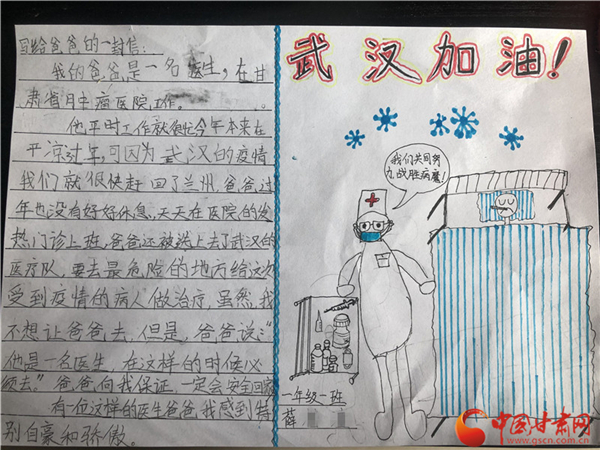 写给爸爸的一封信：
我的爸爸是一名医生，在甘
肃省肿瘤医院工作。
他平时工作就很忙今年本来在
平凉过年，可因为武汉的疫情
我们就很快赶回了兰州，爸爸过
年也没有好好休息，天天在医院的发
热门诊上班，爸爸还被选上去了武汉的
医疗队，要去最危险的地方给这次
受到疫情的病人做治疗，虽然，我
不想让爸爸去，但是，爸爸说：“
他是一名医生，在这样的时候必
须去”爸爸向我保证，一定会安全回家
有一位这样的医生爸爸，我感到特
别自豪和骄傲。
武汉加油！
我们共同努
力，战胜病魔
一年级一班
薛
中国甘肃网
www.gscn.com.cn